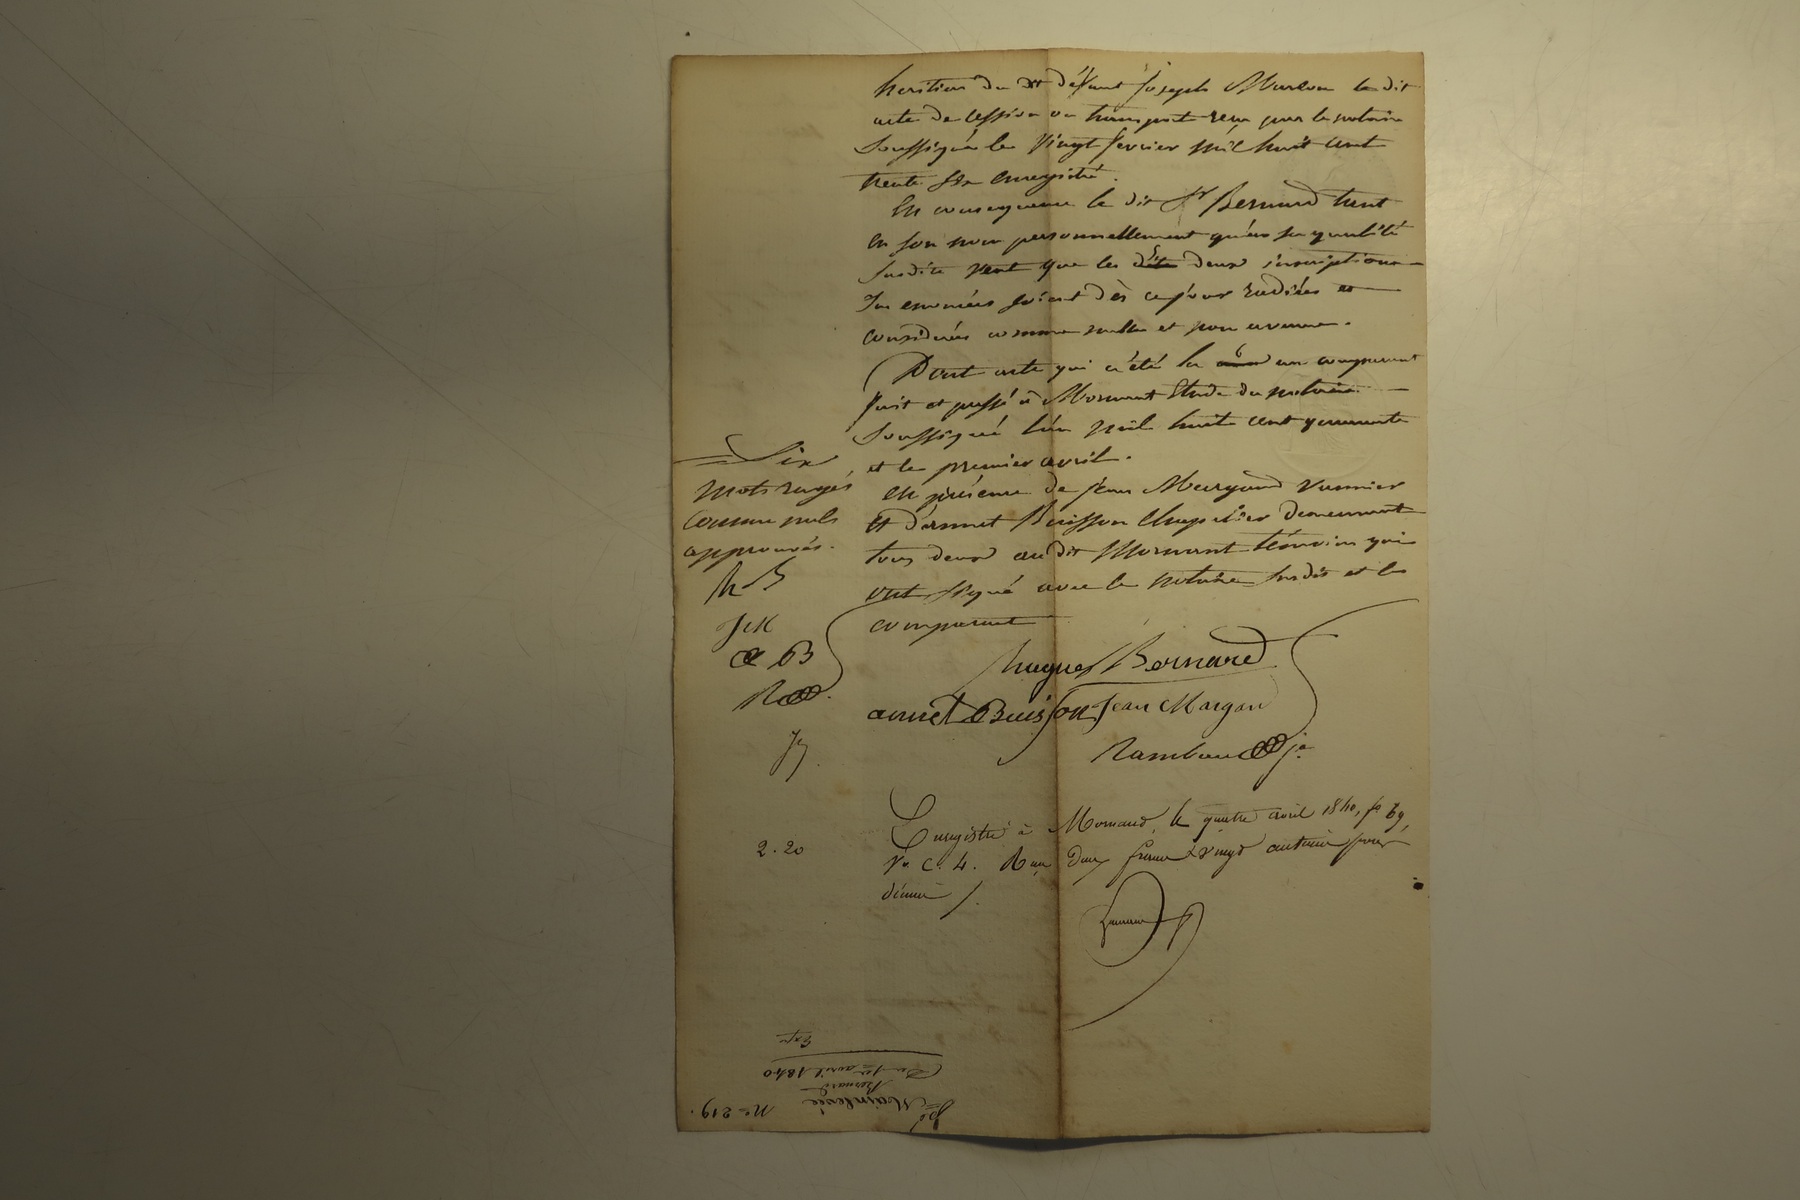 heritiers du dit défunt Joseph Marcou le dit
acte de cession ou transport reçu par le notaire
Soussigné le vingt fevrier mil huit cent
trente six enregistré.
En consequence le dit Sr Bernard tant
en son nom personnellement qu'en sa qualité
susdite veut que les dite deux inscriptions
sus enoncées soient dès ce jour radiées et
considerées comme nulles et non avenues.
Dont acte qui a été lu au comparant
fait et passé à Mornant Etude du notaire
Soussigné l'an mil huit cent quarante
et le premier avril.
en présence de Jean Margand vannier
et d'annet Buisson Chapelier demeurant
tous deux au dit Mornant témoins qui
ont signé avec le notaire susdit et le
comparant
Six
mots rayés
comme nuls
approuvés.
h B
J M
a B
R
hugues Bernard
annet Buisson Jean Margan
Rambaud
2.20
Enregistré à Mornand, le quatre avril 1840, fo 69,
vo C. 4. Reçu deux francs vingt centimes pour
décime
No 219.
Mainlevée
Bernard
Du 1er avril 1840
Exp